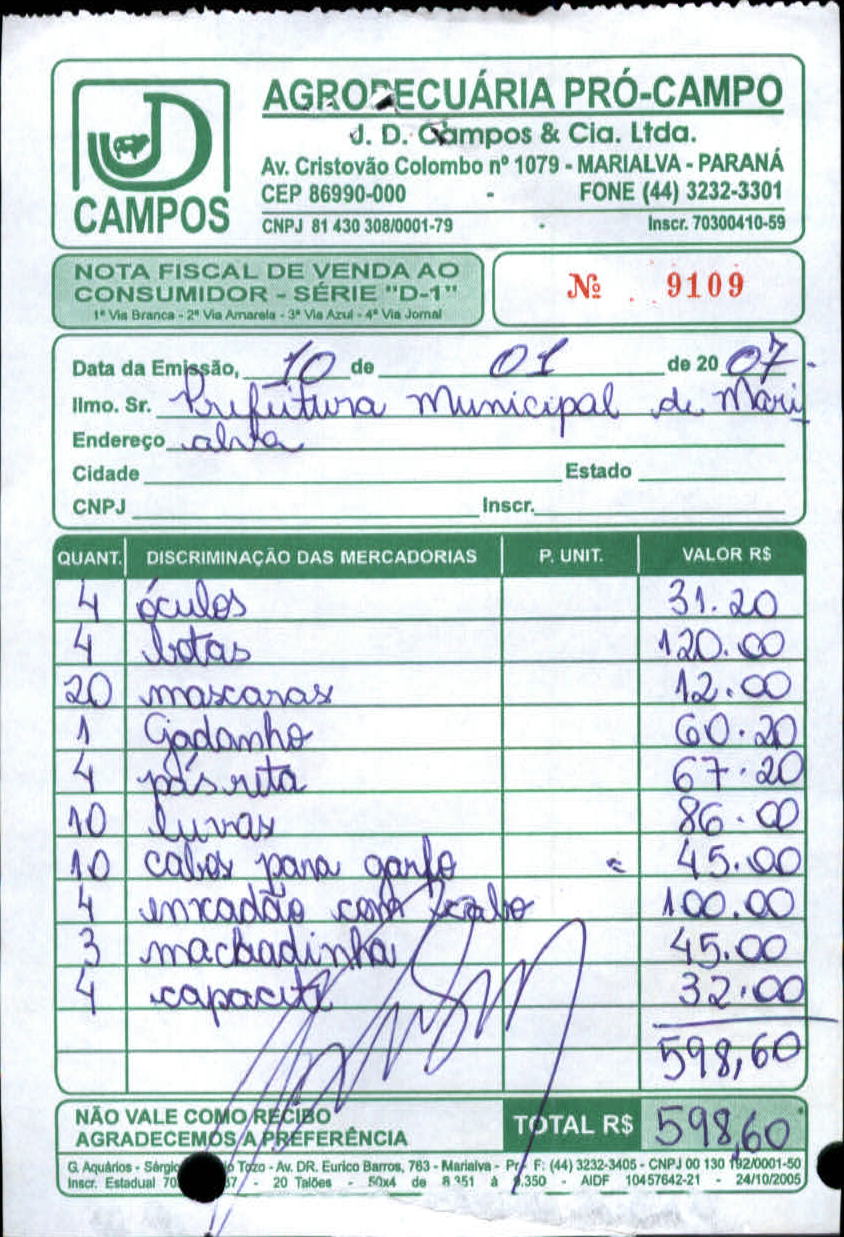 CAMPOS
AGROPECUÁRIA PRÓ-CAMPO
J. D. Campos & Cia. Ltda.
Av. Cristovão Colombo nº 1079 - MARIALVA - PARANÁ
CEP 86990-000 - FONE (44) 3232-3301
CNPJ 81 430 308/0001-79 - Inscr. 70300410-59
NOTA FISCAL DE VENDA AO
CONSUMIDOR - SÉRIE "D-1"
1ª Via Branca - 2ª Via Amarela - 3ª Via Azul - 4ª Via Jornal
Nº 9109
Data da Emissão, 10 de 01 de 20 07
Ilmo. Sr. Prefeitura Municipal de Mari
Endereço alva
Cidade Estado
CNPJ Inscr.
QUANT. DISCRIMINAÇÃO DAS MERCADORIAS P. UNIT. VALOR R$
4 óculos 31.20
4 botas 120.00
20 mascaras 12.00
1 Gadanho 60.20
4 pás reta 67.20
10 luvas 86.00
10 cabos para garfo 45.00
4 enxadão com cabo 100.00
3 machadinha 45.00
4 capacite 32.00
598,60
NÃO VALE COMO RECIBO
AGRADECEMOS A PREFERÊNCIA
TOTAL R$ 598,60
G. Aquários - Sérgio Tozo - Av. DR. Eurico Barros, 763 - Marialva - Pr - F: (44) 3232-3405 - CNPJ 00 130 192/0001-50
Inscr. Estadual - 20 Talões - 50x4 de 8.351 á 9.350 - AIDF 10457642-21 - 24/10/2005